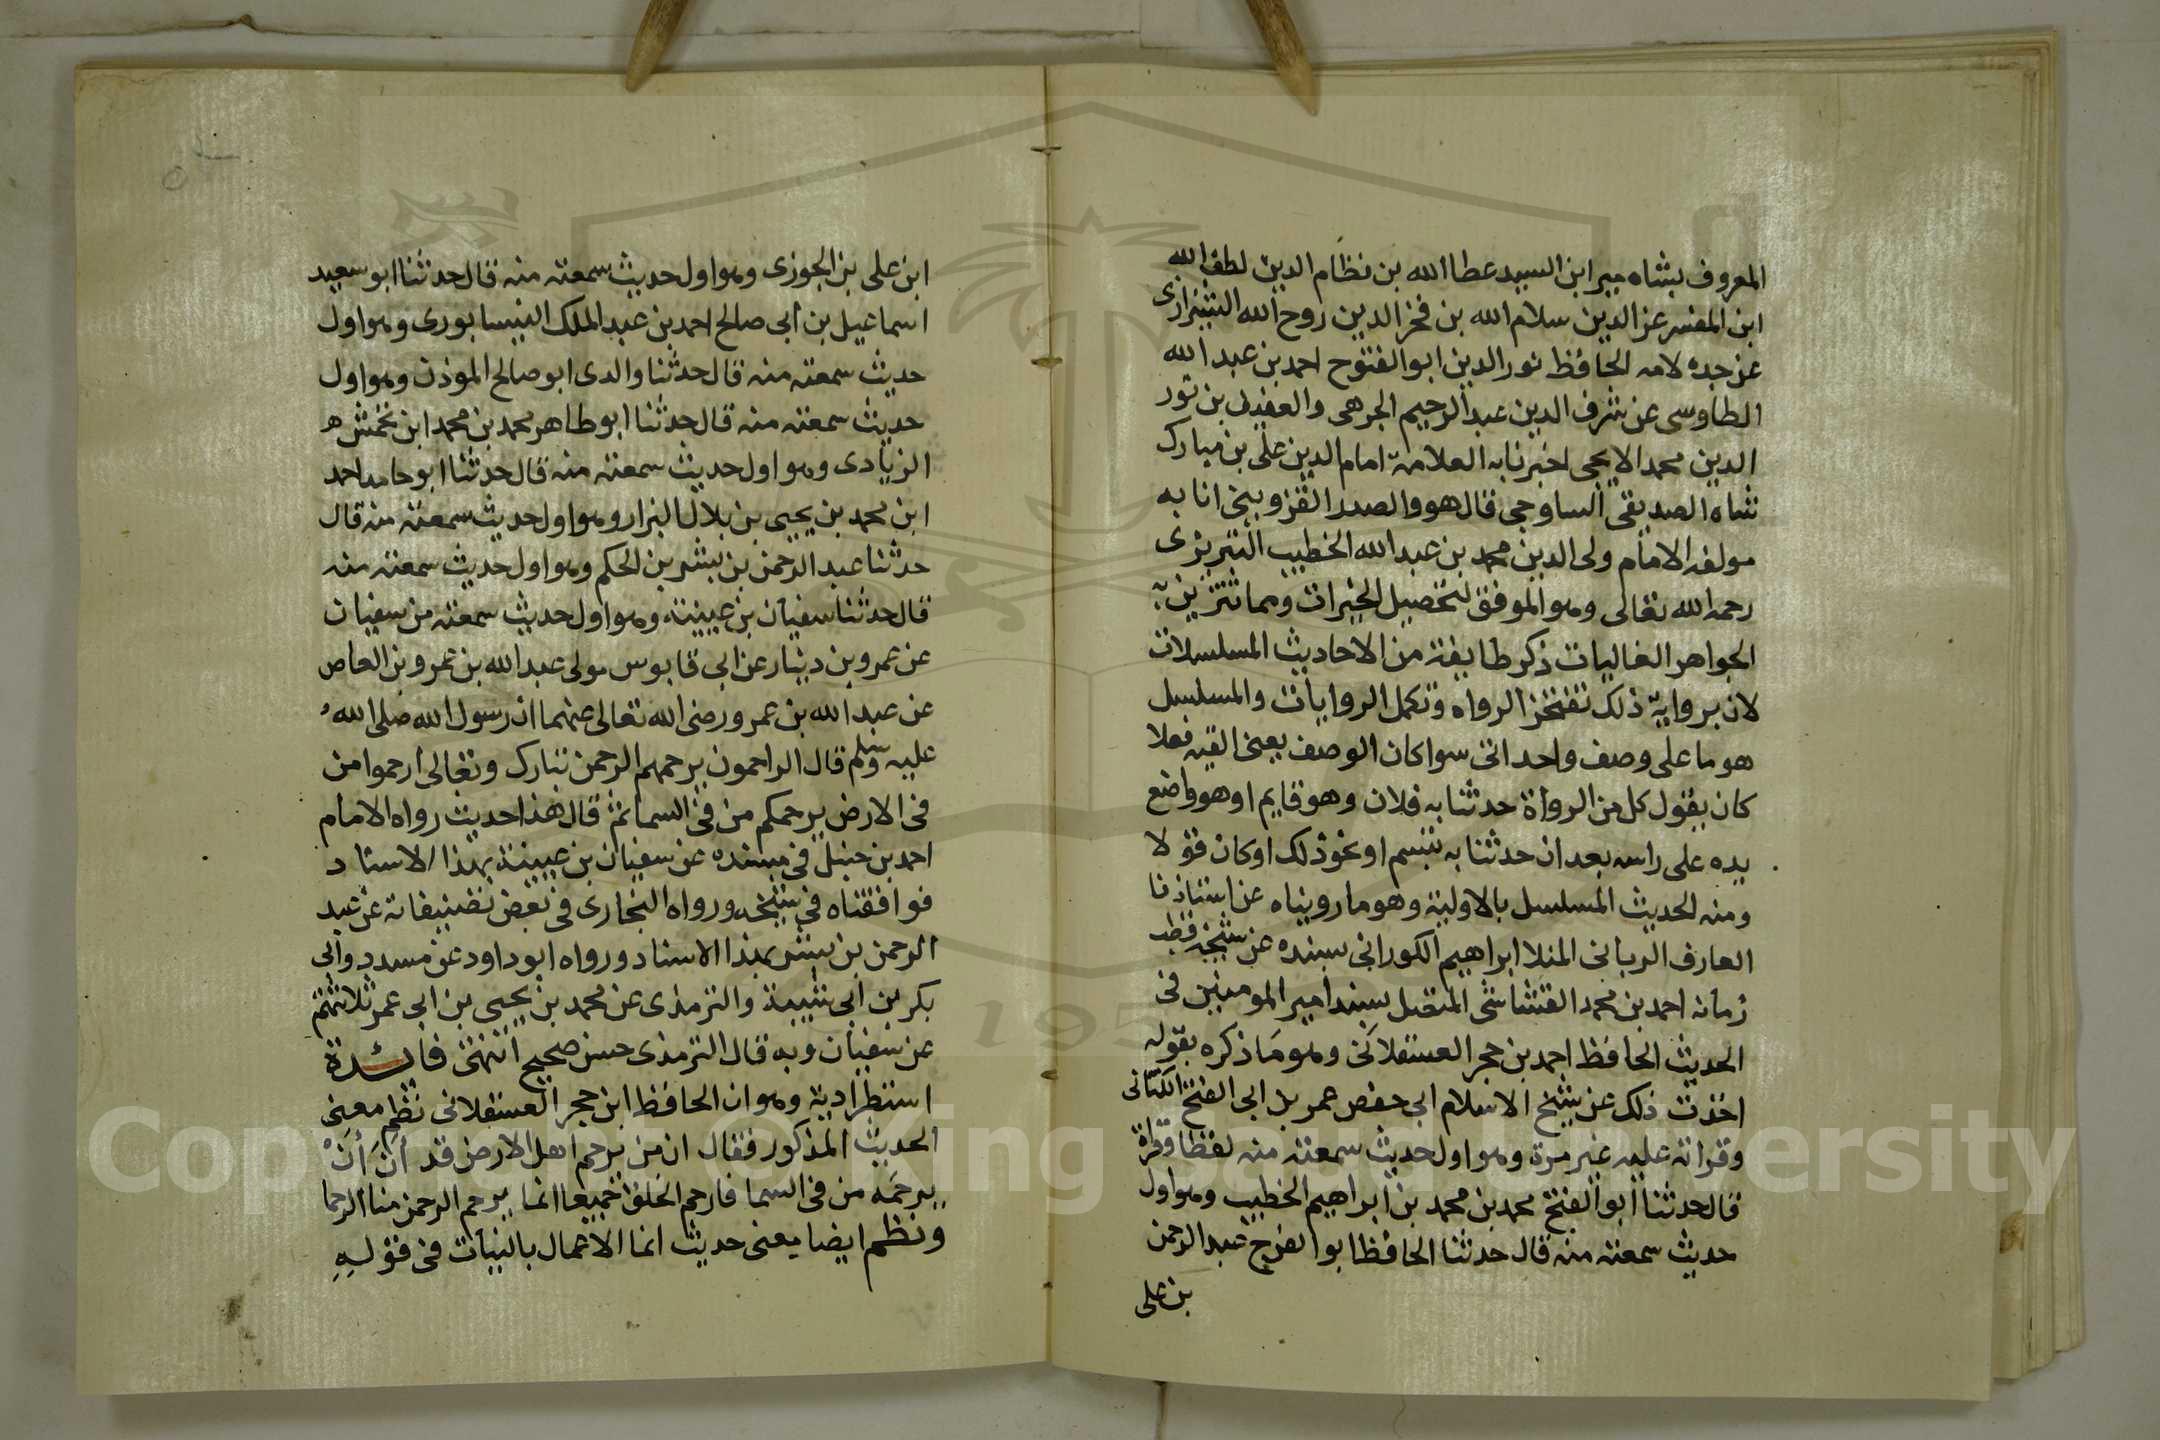 المعروف بشاه مير ابن السيد عطا الله بن نظام الدين لطف الله
ابن المفسر عز الدين سلام الله بن فخر الدين روح الله الشيرازى
عن جده لامه الحافظ نور الدين ابو الفتوح احمد بن عبد الله
الطاوسى عن شرف الدين عبد الرحيم الجرهى والعفيف بن نور
الدين محمد الايجى اخبرنا به العلامة امام الدين على بن مبارك
شاه الصديقى الساوجى قال هو والصدر القزوينى انا به
مولفه الامام ولى الدين محمد بن عبد الله الخطيب التبريزى
رحمه الله تعالى وهو الموفق لتحصيل الخيرات ومما تتزين به
الجواهر الغاليات ذكر طايفة من الاحاديث المسلسلات
لان برواية ذلك تفتخر الرواه وتكمل الروايات والمسلسل
هو ما على وصف واحد اتى سوا كان الوصف يعنى القيه فعلا
كان يقول كل من الرواة حدثنا به فلان وهو قايم او هو واضع
يده على راسه بعد ان حدثنا به تبسم او نحو ذلك او كان قولا
ومنه الحديث المسلسل بالاولية وهو ما رويناه عن استاذنا
العارف الربانى المنلا ابراهيم الكورانى بسنده عن شيخه قطب
زمانه احمد بن محمد القشاشى المتصل بسند امير المومنين فى
الحديث الحافظ احمد بن حجر العسقلانى وهو ما ذكره بقوله
اخذت ذلك عن شيخ الاسلام ابى حفص عمر بل ابى الفتح الكنانى
وقراته عليه غير مرة وهو اول حديث سمعته منه لفظا وقراة
قال حدثنا ابو الفتح محمد بن محمد بن ابراهيم الخطيب وهو اول
حديث سمعته منه قال حدثنا الحافظ ابو الفرج عبد الرحمن
بن على
ابن على بن الجوزى وهو اول حديث سمعته منه قال حدثنا ابو سعيد
اسماعيل بن ابى صالح احمد بن عبد الملك النيسابورى وهو اول
حديث سمعته منه قال حدثنا والدى ابو صالح الموذن وهو اول
حديث سمعته منه قال حدثنا ابو طاهر محمد بن محمد ابن نخمش ه
الزيادى وهو اول حديث سمعته منه قال حدثنا ابو حامد احمد
ابن محمد بن يحيى بن بلال البزار وهو اول حديث سمعته منه قال
حدثنا عبد الرحمن بن بشر بن الحكم وهو اول حديث سمعته منه
قال حدثنا سفيان بن عيينة وهو اول حديث سمعته من سفيان
عن عمرو بن دينار عن ابى قابوس مولى عبد الله بن عمرو بن العاص
عن عبد الله بن عمرو رضى الله تعالى عنهما ان رسول الله صلى الله
عليه وسلم قال الراحمون يرحمهم الرحمن تبارك وتعالى ارحموا من
فى الارض يرحمكم من فى السما ثم قال هذا حديث رواه الامام
احمد بن حنبل فى مسنده عن سفيان بن عيينة بهذا الاسناد
فوافقناه فى شيخه ورواه البخارى فى بعض تصنيفاته عن عبد
الرحمن بن بشر بهذا الاسناد ورواه ابو داود عن مسدد وابى
بكر بن ابى شيبة والترمذى عن محمد بن يحيى بن ابى عمر ثلاثتهم
عن سفيان وبه قال الترمذى حسن صحيح انتهى فائدة
استطرادية وهو ان الحافظ ابن حجر العسقلانى نظم معنى
الحديث المذكور فقال ان من يرحم اهل الارض قد أنَ أنْ
يرحمه من فى السما فارحم الخلق جميعا انما يرحم الرحمن منا الرحما
ونظم ايضا معنى حديث انما الاعمال بالنيات فى قوله